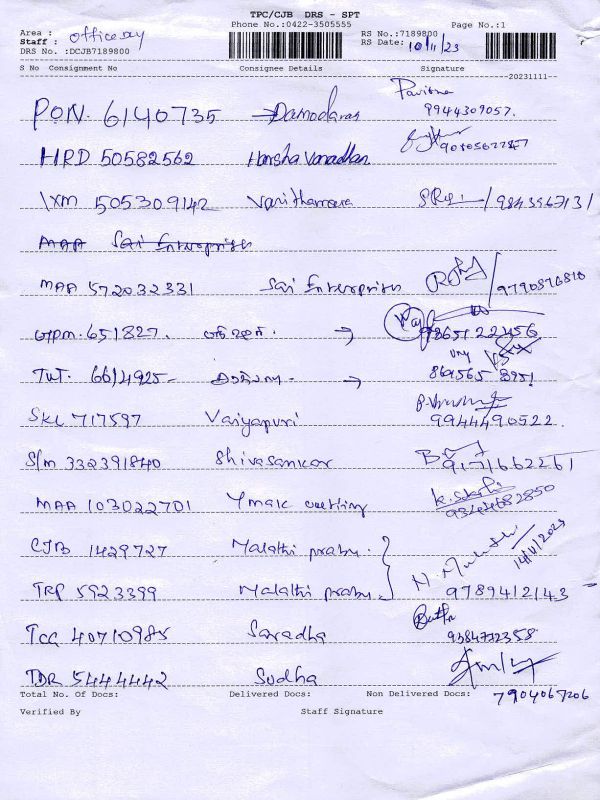 TPC/CJB DRS - SPT
Phone No.:0422-3505555
Page No.:1
Area : office
Staff :
RS No.:7189800
DRS No. :DCJB7189800
RS Date: 10/11/23
S No Consignment No Consignee Details Signature
20231111
PON. 6140735 Damodaran Pavithra 9944309057.
HRD 50582562 Harsha Vanadhan
IXM 505309142 Vanithamara 9843567131
MAA Sai Enterprises
MAA 572032331 Sai Enterprises 9790890810
651827. → 9865122456
TUT. 6614925 → 869565 8951
SKL 717597 Variyapuri 9944490522.
S/m 332391840 Shivasankar 9171662261
MAA 103022701 9344682850
CJB 1429727 Malathi prabu. 14/11/2023
TRP 5923399 Malathi prabu. 9789412143
TCC 40710985 Saradha 9384732358
TDR 5444442 Sudha
Total No. Of Docs: Delivered Docs: Non Delivered Docs: 7904067206
Verified By Staff Signature